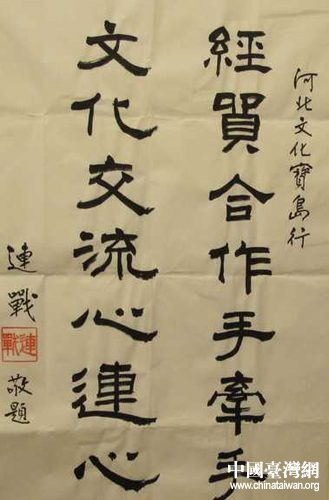 河北文化寶島行
經貿合作手牽手
文化交流心連心
連戰
連戰
敬題
中國臺灣網
www.chinataiwan.org